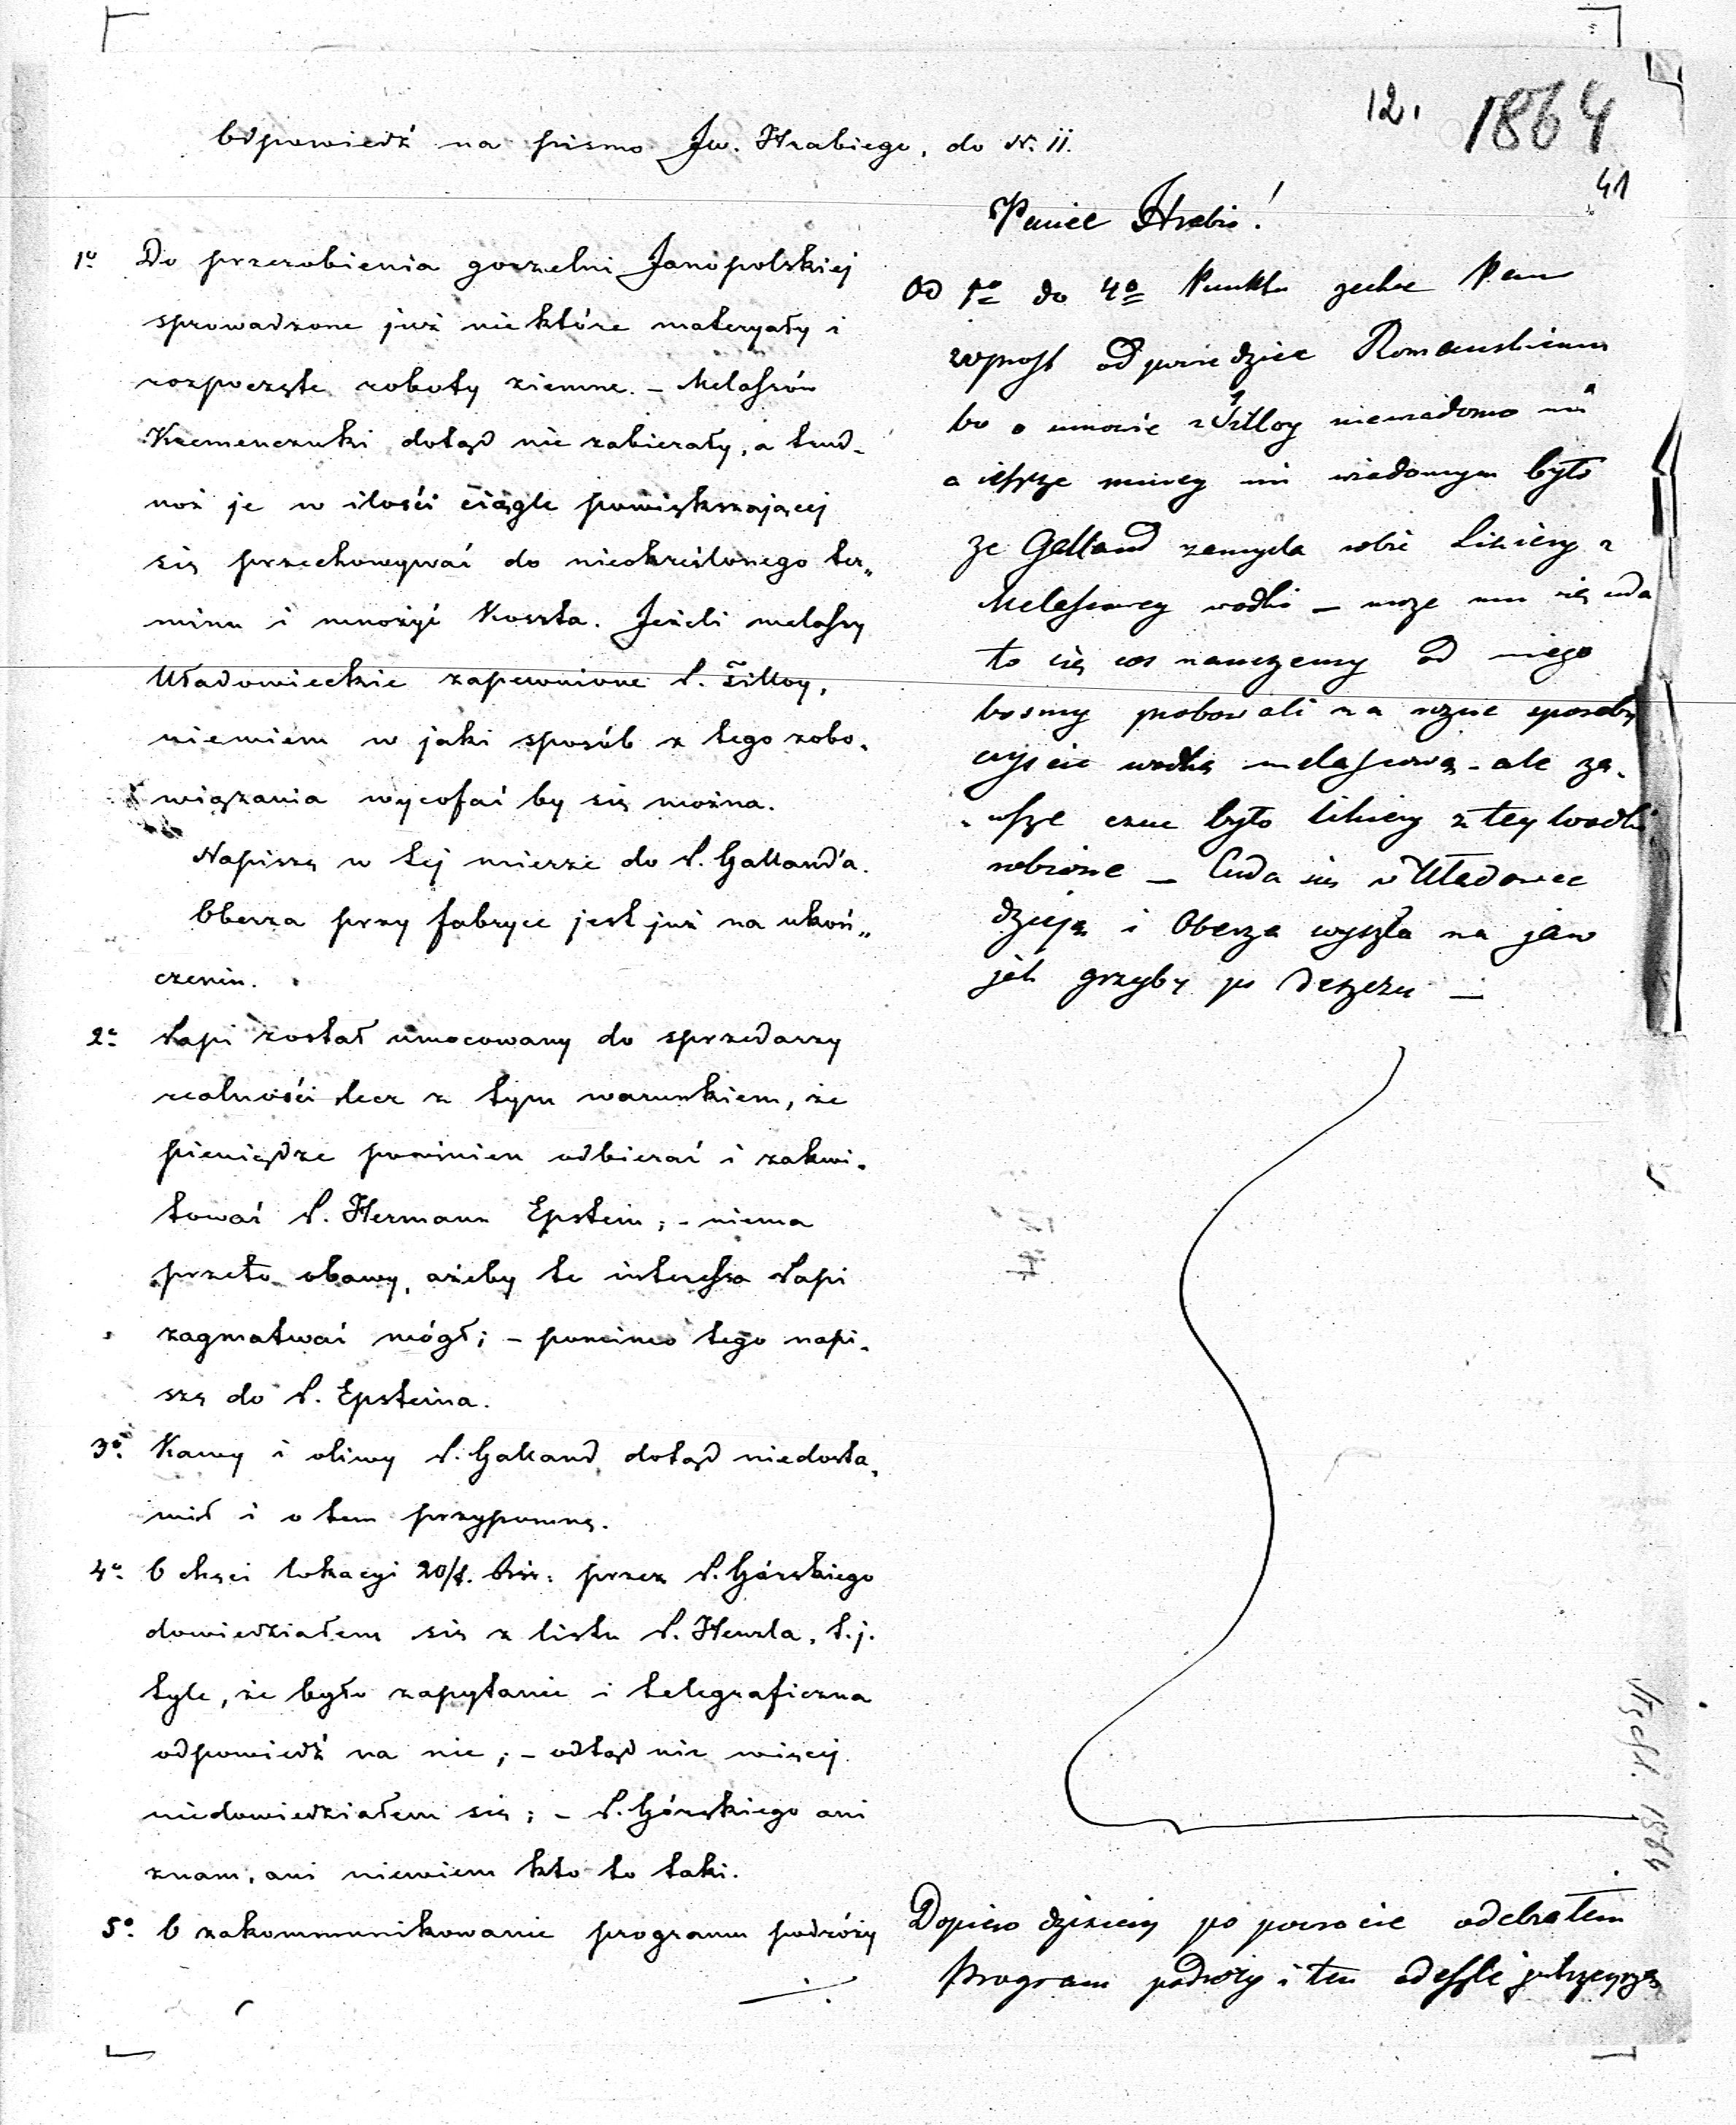 12. 1864
41
Odpowiedź na pismo Jw. Hrabiego, do N. 11.
1o Do przerobienia gorzelni Janopolskiej
sprowadzone już niektóre materyały i
rozpoczęte roboty ziemne. – Melassów
Kremenczuki dotąd nie zabierały, a trud-
noż je w ilości ciągle powiększającej
się przechowywać do nieokreślonego ter„
minu i mnożyć koszta. Jeżeli melassy
Uładowieckie zapewnione P. Tilloy,
niewiem w jaki sposób z tego zobo-
wiązania wycofać by się można.
Napiszę w tej mierze do P. Galland'a.
Oberza przy fabryce jest już na ukoń„
czeniu.
2o Papi został umocowany do sprzedarzy
realności lecz z tym warunkiem, że
pieniądze powinien odbierać i zakwi-
tować P. Hermann Epstein; – niema
przeto obawy, ażeby te interessa Papi
zagmatwać mógł; – pomimo tego napi-
szę do P. Epsteina.
3o Kawy i oliwy P. Galland dotąd niedosta„
wił i o tem przypomnę.
4o O chęci lokacyi 20/t. przez P. Górskiego
dowiedziałem się z listu P. Henzla, t.j.
tyle, że było zapytanie i telegraficzna
odpowiedź na nie; – odtąd nic więcej
niedowiedziałem się; – P. Górskiego ani
znam, ani niewiem kto to taki.
5o O zakommunikowanie programu podróży
Panie Hrabio!
Od 1o do 4o Punktu zechce Pan
wprost odpowiedziec Romanskiemu
bo o umowie z Tilloy niewiadomo mi
a jeszsze mniey mi wiadomym było
ze Galland zamysla robic Likiery z
Melassowey wodki – moze mu się uda
to się cos nauczemy od niego
bosmy probowali na rozne sposoby
czyscic wodkę melassową – ale za-
wsze czuc było likiery z tey wodki
robione – Cuda się w Uładowce
dzieją i Oberza wyszła na jaw
jak grzyby po deszczu –
Dopiero dzisiay po powrocie odebrałem
Program podrozy i ten odeszle
1864